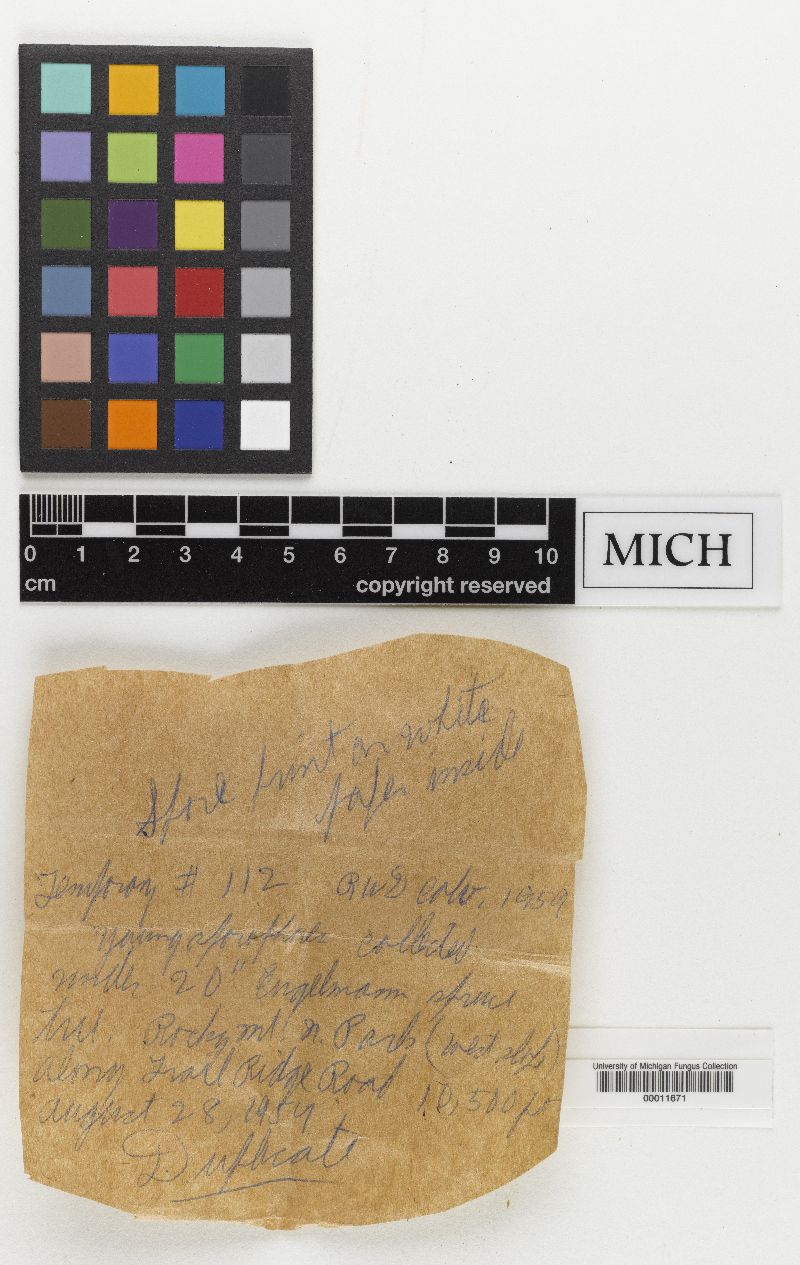 0 1 2 3 4 5 6 7 8 9 10
cm copyright reserved
MICH
Spore print on white
paper inside
Temporary # 112 RWD Colo. 1959
young sporophores collected
under 20" Engelmann spruce
tree. Rocky mt. n. Park (west slope)
along Trail Ridge Road 10,500 ft
August 28, 1959
Duplicate
University of Michigan Fungus Collection
00011671